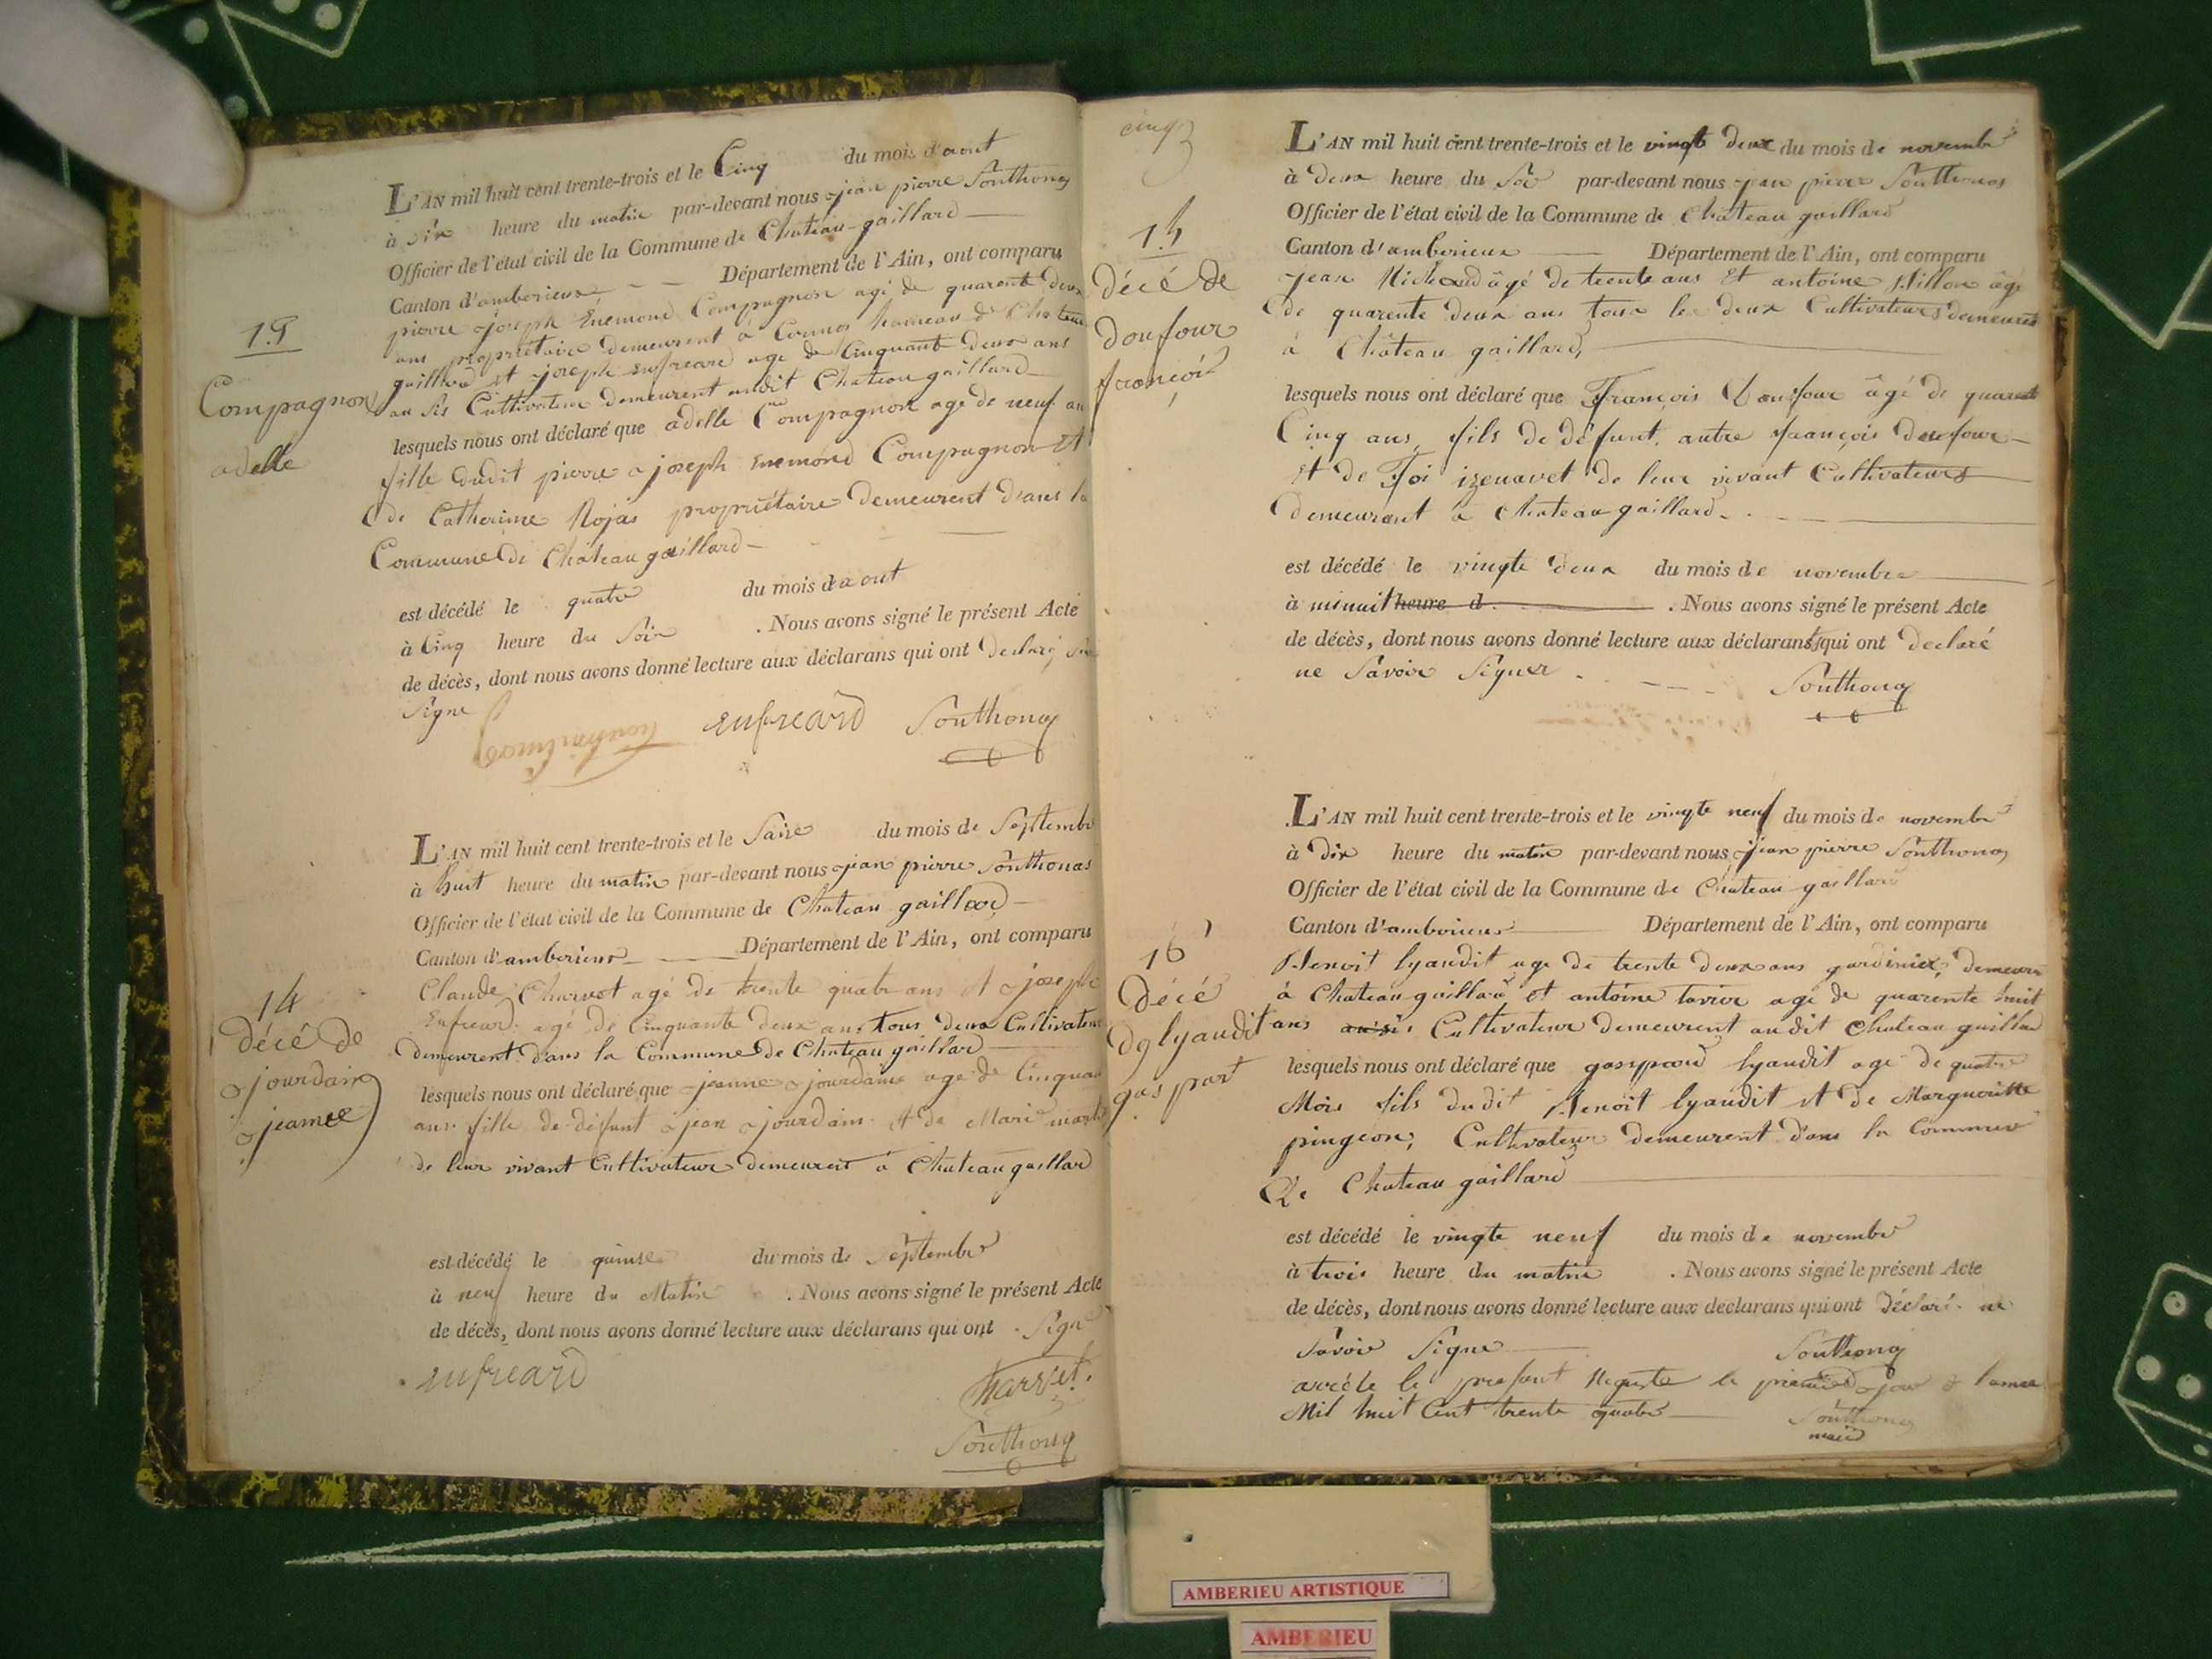 L'AN mil huit cent trente-trois et le Cinq du mois d'aout
à dix heure du matin par-devant nous jean pierre Southonax
Officier de l'état civil de la Commune de Chateau-gaillard
Canton d'amberieux Département de l'Ain, ont comparu
pierre joseph Enemond Compagnon agé de quarente deux
ans propriétaire demeurent à Cormoz hameau de Chateau
gaillard et joseph enfreard age de Cinquante deux ans
Cultivateur demeurent audit Chateau gaillard
lesquels nous ont déclaré que adelle Compagnon age de neuf an
fille dudit pierre joseph enemond Compagnon Et
de Catherine Rojas propriétaire demeurent dans la
Commune de Château gaillard
est décédé le quatre du mois d'aout
à Cinq heure du Soir . Nous avons signé le présent Acte
de décès, dont nous avons donné lecture aux déclarans qui ont
Signe
enfreard Southonax
Compagnon
adelle
L'AN mil huit cent trente-trois et le Saise du mois de Septembre
à huit heure du matin par-devant nous jean pierre Southonax
Officier de l'état civil de la Commune de Chateau gaillard
Canton d'amberieux Département de l'Ain, ont comparu
Claude Charvet agé de trente quatre ans et joseph
Enfreard agé de Cinquante deux ans tous deux Cultivateur
demeurent dans la Commune de Chateau gaillard
lesquels nous ont déclaré que jeanne jourdain age de Cinquante
ans fille de défunt jean jourdain et de Marie
de leur vivant Cultivateur demeurent à Chateau gaillard
est décédé le quinse du mois de Septembre
à neuf heure du Matin . Nous avons signé le présent Acte
de décès, dont nous avons donné lecture aux déclarans qui ont Signé
enfreard
Charvet
Southonax
14
décé de
jourdain
jeanne
cinq
L'AN mil huit cent trente-trois et le vingte deux du mois de novembre
à deux heure du Soir par-devant nous jean pierre Southonax
Officier de l'état civil de la Commune de Château gaillard
Canton d'amberieux Département de l'Ain, ont comparu
jean Michaud âgé de trente ans Et antoine Billon âgé
de quarente deux ans tous les deux Cultivateurs demeurent
à Château gaillard,
lesquels nous ont déclaré que François Doufour âgé de quarente
Cinq ans, fils de défunt autre françois doufour
Et de de leur vivant Cultivateurs
demeurant à Chateau gaillard
est décédé le vingte deux du mois de novembre
à minuit heure d . Nous avons signé le présent Acte
de décès, dont nous avons donné lecture aux déclarants qui ont declaré
ne Savoir Signer Southonax
décé de
Doufour
françois
L'AN mil huit cent trente-trois et le vingte neuf du mois de novembre
à dix heure du matin par-devant nous jean pierre Southonax
Officier de l'état civil de la Commune de Château gaillard
Canton d'amberieux Département de l'Ain, ont comparu
Benoit lyaudit age de trente deux ans demeure
à Chateau gaillard et antoine tavier agé de quarente huit
ans Cultivateur demeurent audit Chateau gaillard
lesquels nous ont déclaré que gaspard lyaudit age de quatre
Mois fils dudit Benoit lyaudit et de Marguerite
pingeon, Cultivateur demeurent dans la Commune
De Chateau gaillard
est décédé le vingte neuf du mois de novembre
à trois heure du matin . Nous avons signé le présent Acte
de décès, dont nous avons donné lecture aux déclarans qui ont déclaré ne
Savoir Signe Southonax
arrété le présent Registe le premier jour de lannee
Mil huit Cent trente quatre Southonax
maire
16
Décé
De lyaudit
gaspart
AMBERIEU ARTISTIQUE
AMBERIEU